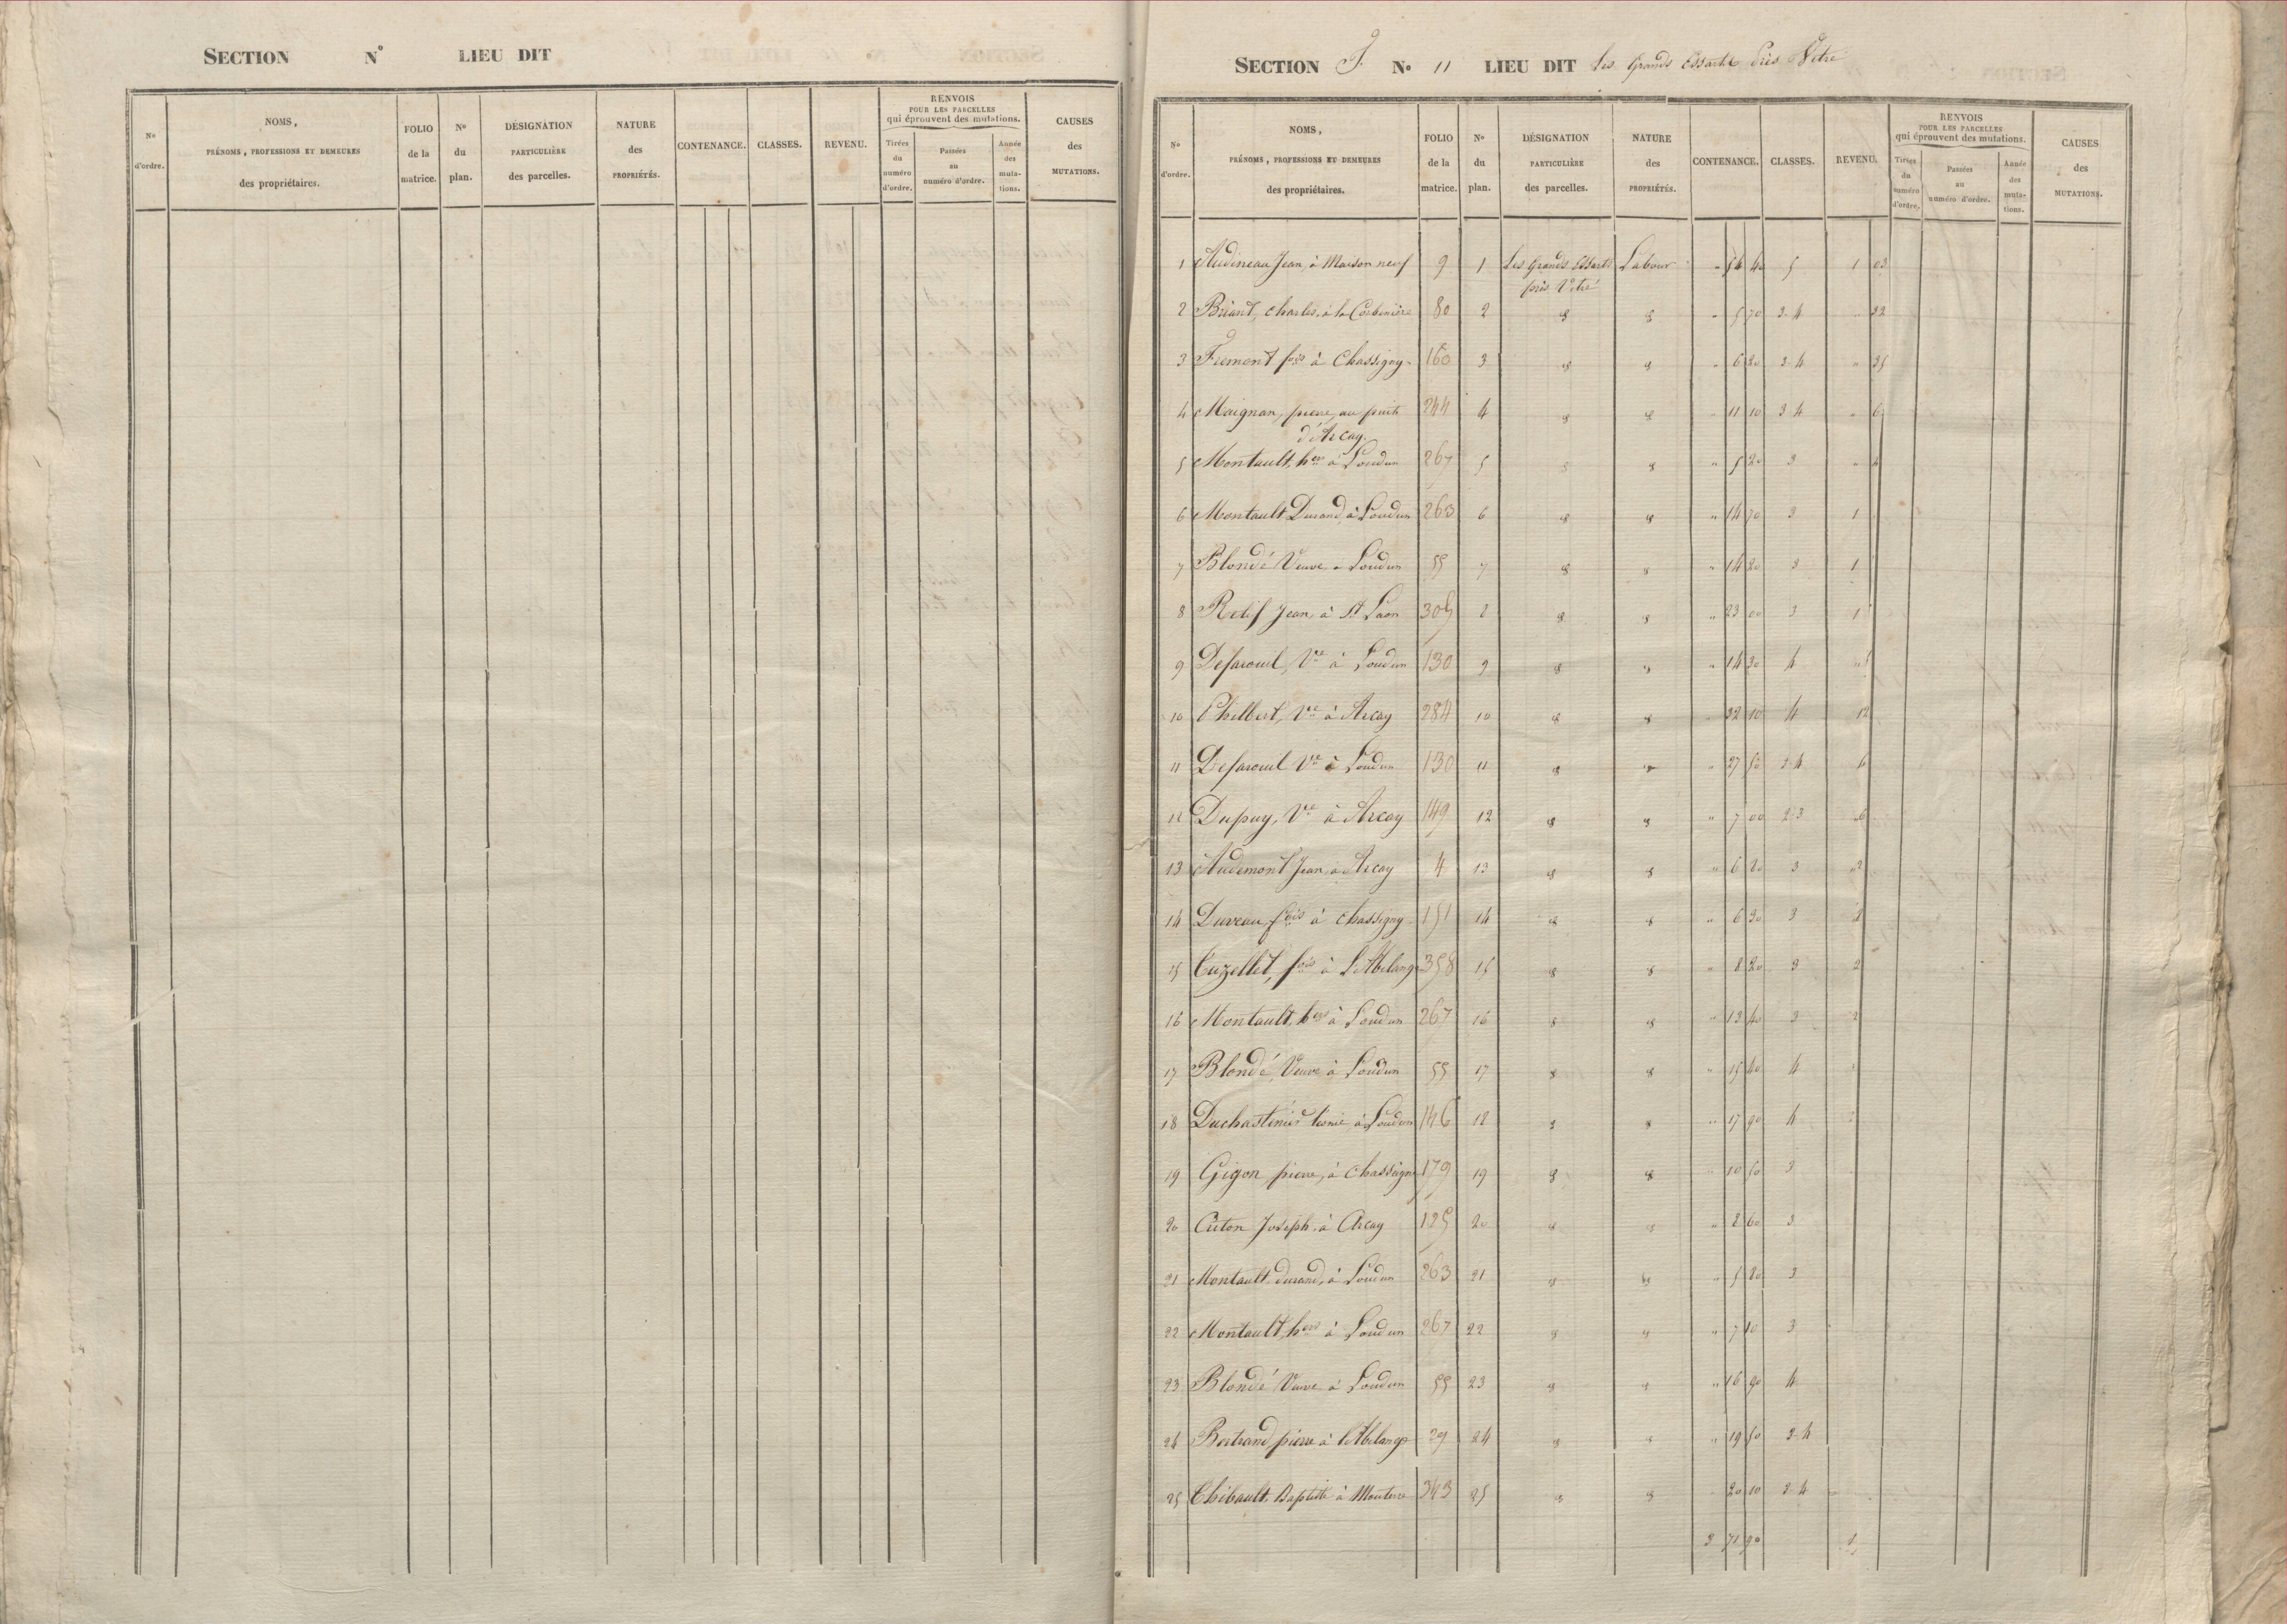 SECTION N° LIEU DIT
N° d'ordre. NOMS, PRÉNOMS, PROFESSIONS ET DEMEURES des propriétaires. FOLIO de la matrice. N° du plan. DÉSIGNATION PARTICULIÈRE des parcelles. NATURE des PROPRIÉTÉS. CONTENANCE. CLASSES. REVENU. RENVOIS POUR LES PARCELLES qui éprouvent des mutations. Tirées du numéro d'ordre. Passées au numéro d'ordre. Année des muta-tions. CAUSES des MUTATIONS.
SECTION J. N° 11 LIEU DIT Les Grands Essarts près Vitré
N° d'ordre. NOMS, PRÉNOMS, PROFESSIONS ET DEMEURES des propriétaires. FOLIO de la matrice. N° du plan. DÉSIGNATION PARTICULIÈRE des parcelles. NATURE des PROPRIÉTÉS. CONTENANCE. CLASSES. REVENU. RENVOIS POUR LES PARCELLES qui éprouvent des mutations. Tirées du numéro d'ordre. Passées au numéro d'ordre. Année des muta-tions. CAUSES des MUTATIONS.
1 Audineau Jean, à Maison neuf 9 1 Les Grands Essarts Labour " 40 5 1 03
près Vitré
2 Briant, Charles, à la Corbinière 80 2 " " " 5 70 3-4 " 32
3 Fremont fois à Chassigny 160 3 " " " 6 80 3-4 " 35
4 Maignan, pierre, au puits 244 4 " " " 11 10 3 4 " 6
d'Arcay.
5 Montault, hers à Loudun 267 5 " " " 5 20 3 "
6 Montault Durand, à Loudun 263 6 " " " 14 70 3 1
7 Blondé Veuve à Loudun 55 7 " " " 14 80 3 1
8 Retif Jean, à St Laon 305 8 " " " 23 00 3 1
9 Desarouil, Ve à Loudun 130 9 " " " 14 30 4 "
10 Philbert, Ve à Arcay 284 10 " " " 32 10 4
11 Desarouil Ve à Loudun 130 11 " " " 27 50 3-4
12 Dupuy, Ve à Arcay 149 12 " " " 7 00 2-3
13 Audemont Jean à Arcay 4 13 " " " 6 80 3
14 Duveau, fois à Chassigny 151 14 " " " 6 30 3
15 Cuzellet, fois à L'Abelange 358 15 " " " 8 20 3 2
16 Montault, hers à Loudun 267 16 " " " 13 40 3 2
17 Blondé, Veuve à Loudun 55 17 " " " 15 40 4
18 Duchastenier à Loudun 146 18 " " " 17 90 4
19 Gigon pierre, à Chassigny 179 19 " " " 10 50 3
20 Joseph à Arcay 125 20 " " " 8 60 3
21 Montault, durand, à Loudun 263 21 " " " 5 80 3
22 Montault, hers à Loudun 267 22 " " " 7 10 3
23 Blondé Veuve à Loudun 55 23 " " " 16 90 4
24 Bertrand pierre à l'Abelange 29 24 " " " 19 50 3-4
25 Thibault, Baptiste à Mouterre 343 25 " " 20 10 3-4
3 71 90